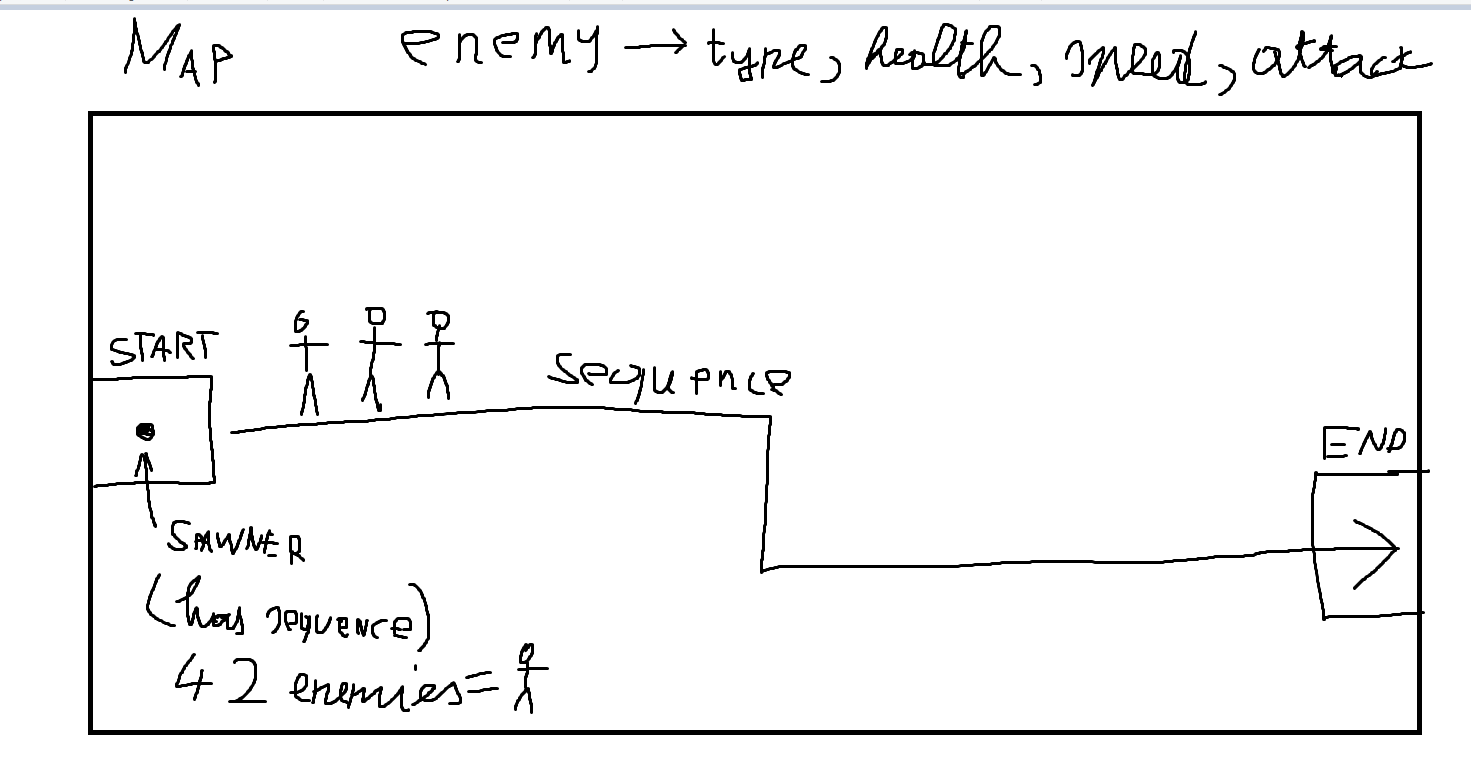 MAP enemy → type, health, speed, attack
START
sequence
END
SPAWNER
(has sequence)
42 enemies=